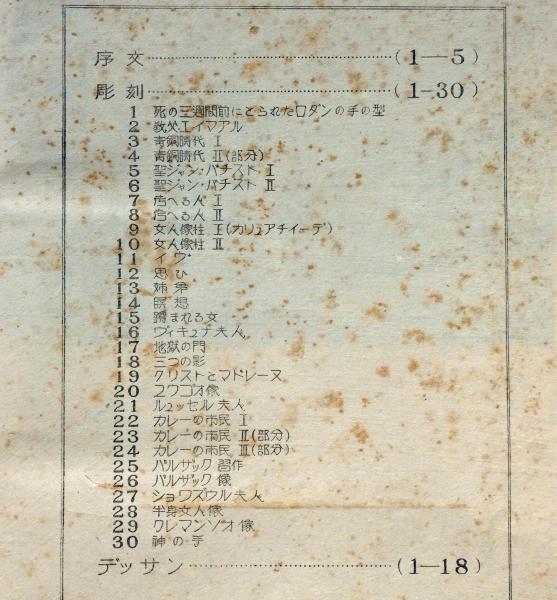 序文……(1—5)
彫刻……(1-30)
1 死の三週間前にとられたロダンの手の型
2 教父エイマアル
3 青銅時代 I
4 青銅時代 II(部分)
5 聖ジャン・バチスト I
6 聖ジャン・バチスト II
7 考へる人 I
8 考へる人 II
9 女人像柱 I(カリュアチイーデ)
10 女人像柱 II
11 イヴ
12 思ひ
13 姉弟
14 瞑想
15 蹲まれる女
16 ヴィキュナ夫人
17 地獄の門
18 三つの影
19 クリストとマドレーヌ
20 ユウゴオ像
21 ルュッセル夫人
22 カレーの市民 I
23 カレーの市民 II(部分)
24 カレーの市民 III(部分)
25 バルザック習作
26 バルザック像
27 ショワズウル夫人
28 半身女人像
29 クレマンソオ像
30 神の手
デッサン……(1—18)